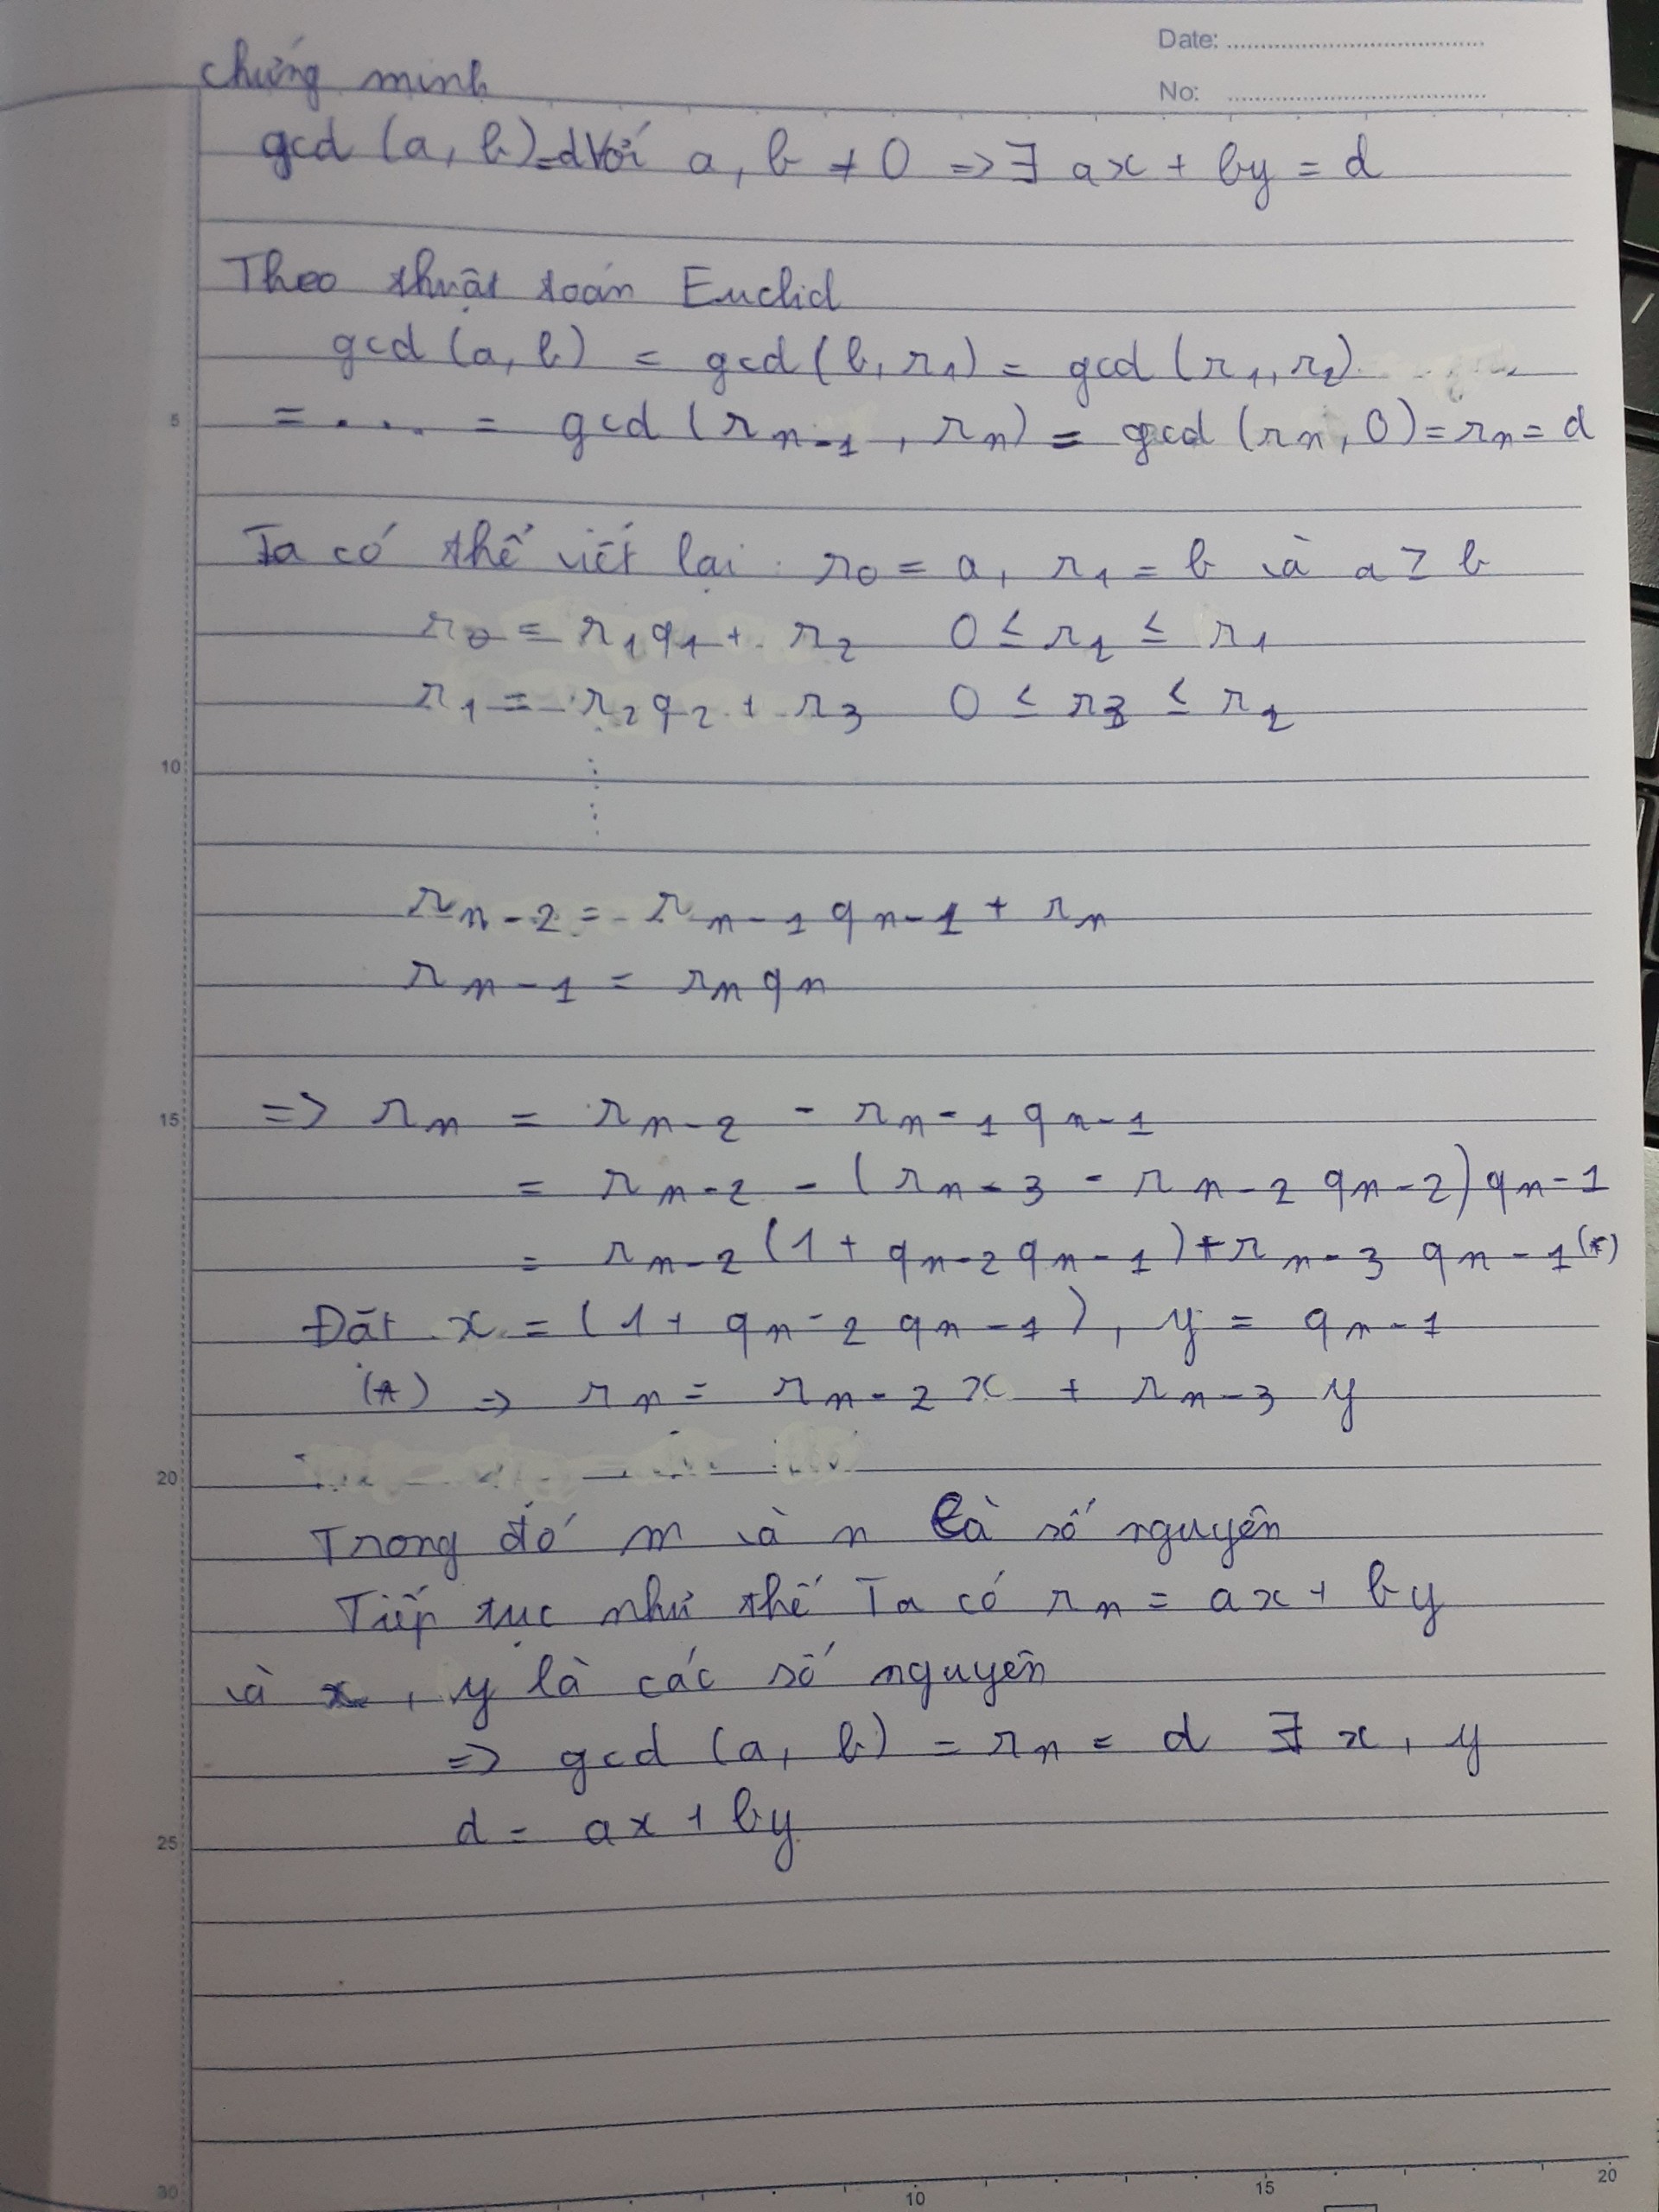 Date:
No:
chứng minh
gcd (a, b)=d Với a, b ≠ 0 => ∃ ax + by = d
Theo thuật toán Euclid
gcd (a, b) = gcd (b, r₁) = gcd (r₁, r₂)
5
= .... = gcd (rₙ₋₁, rₙ) = gcd (rₙ, 0) = rₙ = d
Ta có thể viết lại: r₀ = a, r₁ = b và a ≥ b
r₀ = r₁q₁ + r₂ 0 ≤ r₂ ≤ r₁
r₁ = r₂q₂ + r₃ 0 ≤ r₃ ≤ r₂
10
rₙ₋₂ = rₙ₋₁ qₙ₋₁ + rₙ
rₙ₋₁ = rₙ qₙ
15
=> rₙ = rₙ₋₂ - rₙ₋₁ qₙ₋₁
= rₙ₋₂ - (rₙ₋₃ - rₙ₋₂ qₙ₋₂) qₙ₋₁
= rₙ₋₂ (1 + qₙ₋₂ qₙ₋₁) + rₙ₋₃ qₙ₋₁ (*)
Đặt x = (1 + qₙ₋₂ qₙ₋₁), y = qₙ₋₁
(*) => rₙ = rₙ₋₂ x + rₙ₋₃ y
20
Trong đó m và n là số nguyên
Tiếp tục như thế Ta có rₙ = ax + by
và x, y là các số nguyên
=> gcd (a, b) = rₙ = d ∃ x, y
25
d = ax + by
30
10 15 20